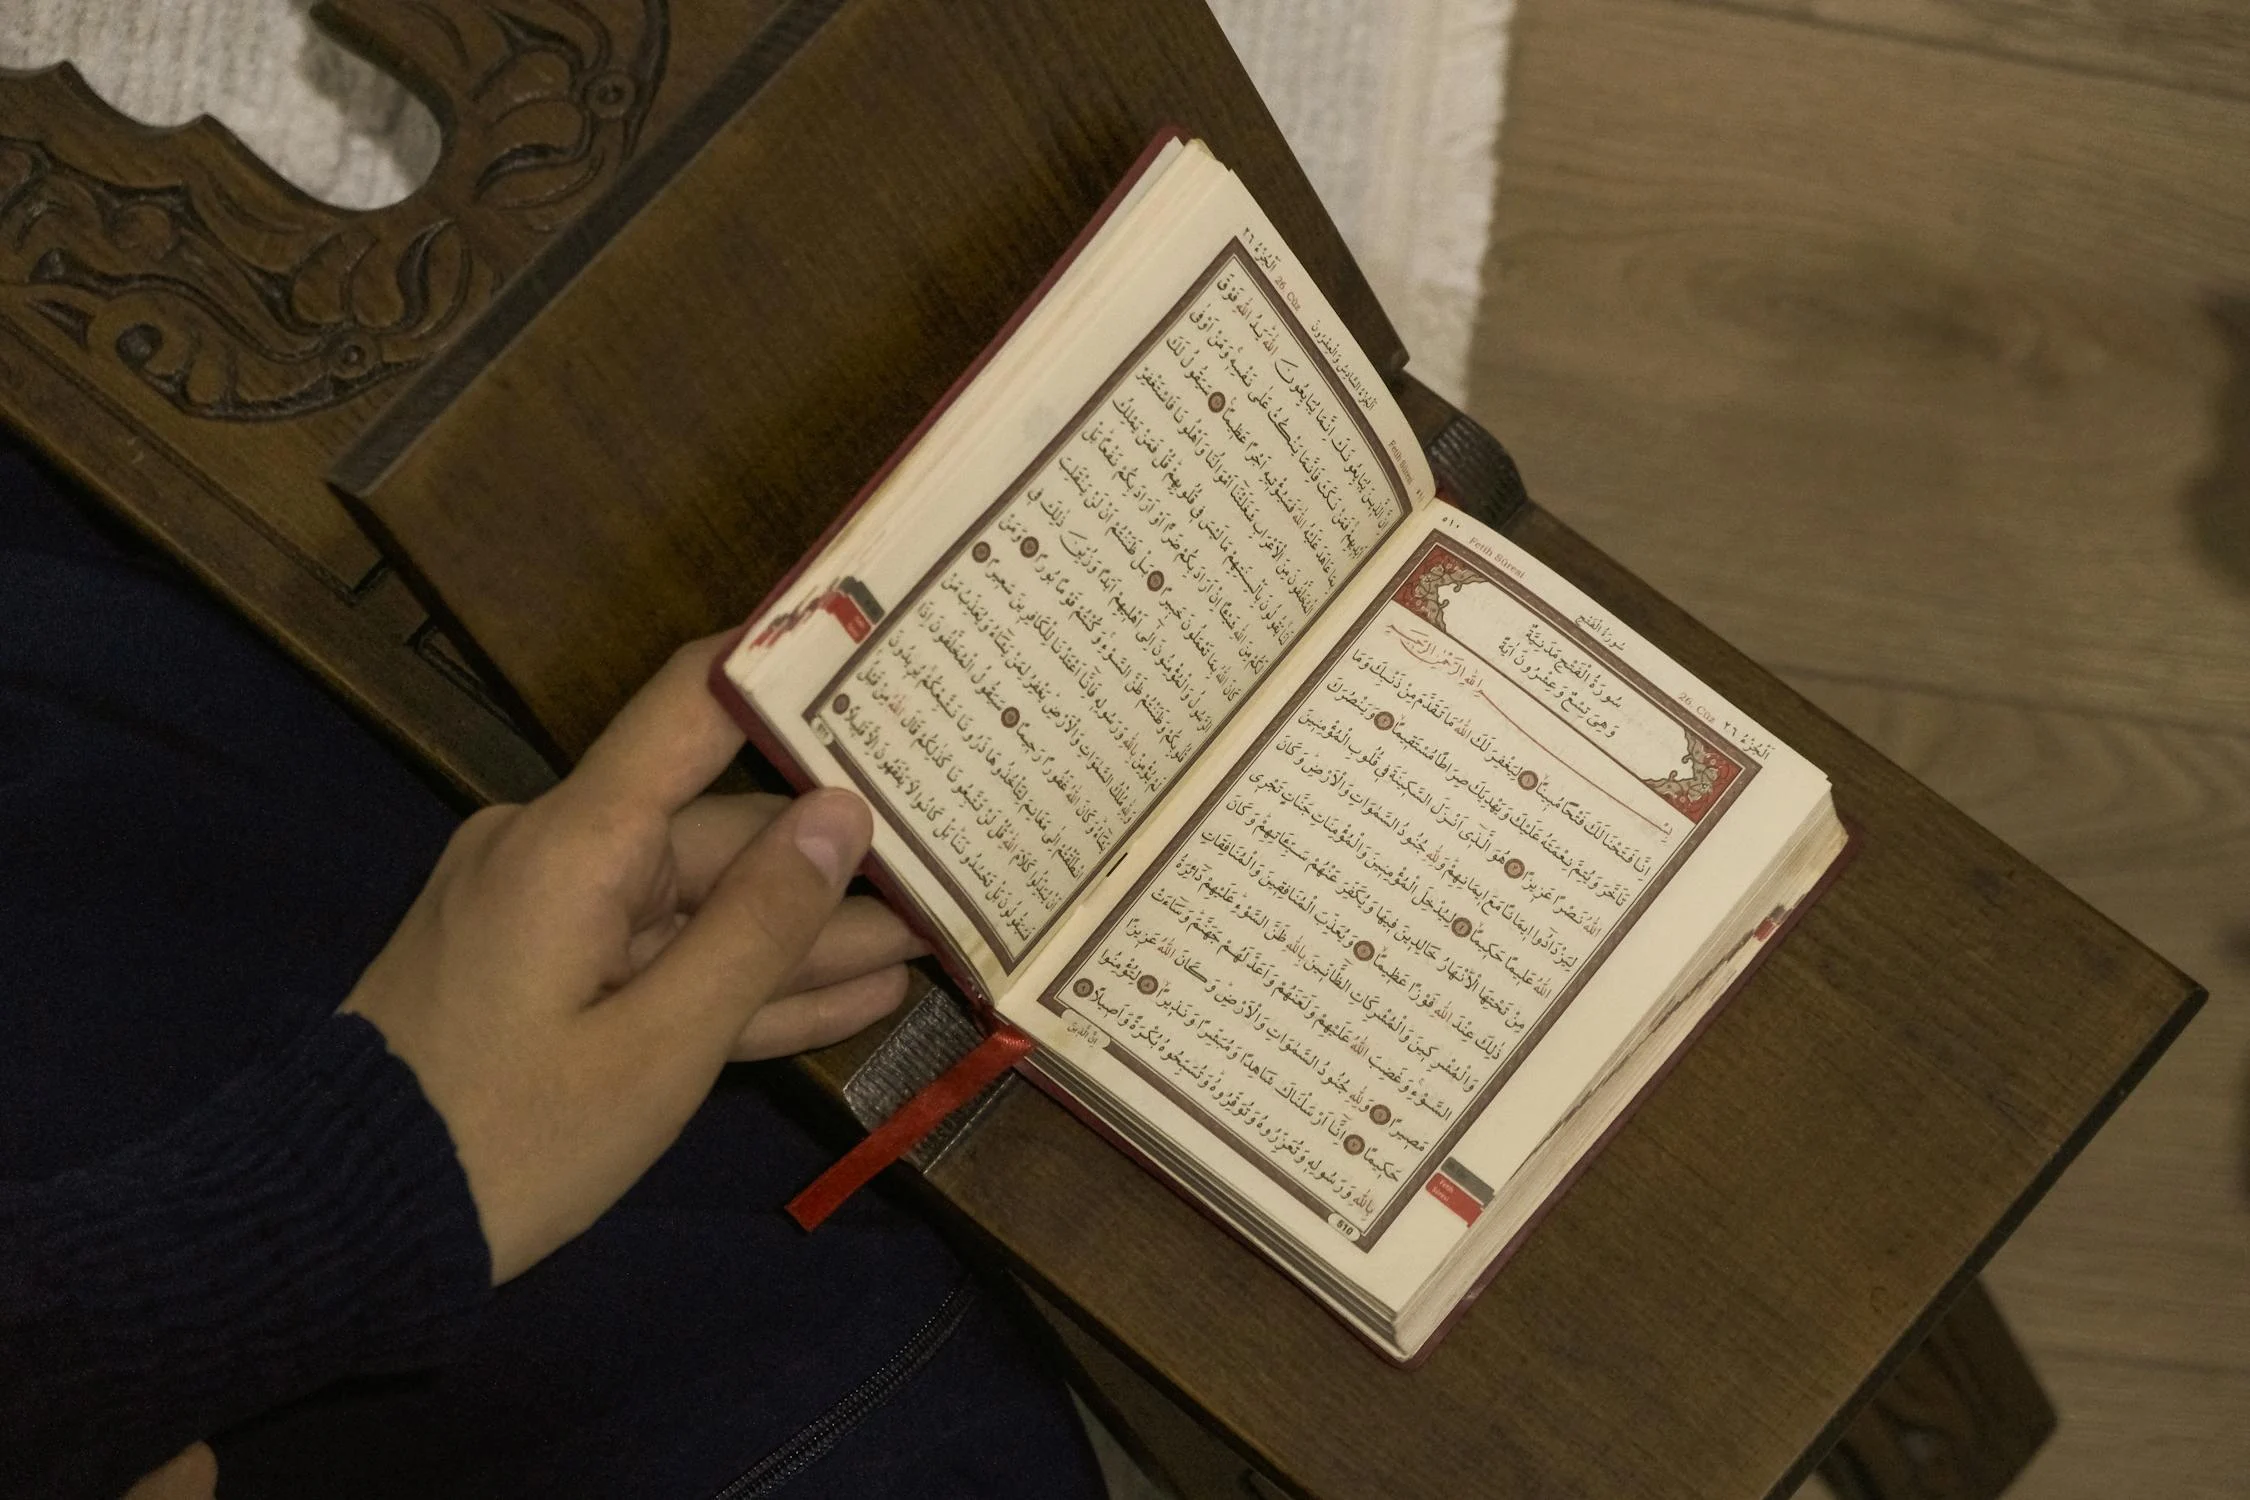 ٥١٠ Fetih Sûresi سُورَةُ الْفَتْحِ 26. Cüz اَلْجُزْءُ ٢٦
سُورَةُ الْفَتْحِ مَدَنِيَّةٌ
وَهِىَ تِسْعٌ وَعِشْرُونَ اٰيَةً
بِسْمِ اللّٰهِ الرَّحْمٰنِ الرَّحِيمِ
اِنَّا فَتَحْنَا لَكَ فَتْحًا مُبِينًاۙ ﴿١﴾ لِيَغْفِرَ لَكَ اللّٰهُ مَا تَقَدَّمَ مِنْ ذَنْبِكَ وَمَا
تَاَخَّرَ وَيُتِمَّ نِعْمَتَهُ عَلَيْكَ وَيَهْدِيَكَ صِرَاطًا مُسْتَقِيمًاۙ ﴿٢﴾ وَيَنْصُرَكَ
اللّٰهُ نَصْرًا عَزِيزًا ﴿٣﴾ هُوَ الَّذِٓى اَنْزَلَ السَّكِينَةَ فِى قُلُوبِ الْمُؤْمِنِينَ
لِيَزْدَادُٓوا اِيمَانًا مَعَ اِيمَانِهِمْۜ وَلِلّٰهِ جُنُودُ السَّمٰوَاتِ وَالْاَرْضِۜ وَكَانَ
اللّٰهُ عَلِيمًا حَكِيمًاۙ ﴿٤﴾ لِيُدْخِلَ الْمُؤْمِنِينَ وَالْمُؤْمِنَاتِ جَنَّاتٍ تَجْرِى
مِنْ تَحْتِهَا الْاَنْهَارُ خَالِدِينَ فِيهَا وَيُكَفِّرَ عَنْهُمْ سَيِّـَٔاتِهِمْۜ وَكَانَ
ذٰلِكَ عِنْدَ اللّٰهِ فَوْزًا عَظِيمًاۙ ﴿٥﴾ وَيُعَذِّبَ الْمُنَافِقِينَ وَالْمُنَافِقَاتِ
وَالْمُشْرِكِينَ وَالْمُشْرِكَاتِ الظَّٓانِّينَ بِاللّٰهِ ظَنَّ السَّوْءِۜ عَلَيْهِمْ دَٓائِرَةُ
السَّوْءِۚ وَغَضِبَ اللّٰهُ عَلَيْهِمْ وَلَعَنَهُمْ وَاَعَدَّ لَهُمْ جَهَنَّمَۜ وَسَٓاءَتْ
مَصِيرًا ﴿٦﴾ وَلِلّٰهِ جُنُودُ السَّمٰوَاتِ وَالْاَرْضِۜ وَكَانَ اللّٰهُ عَزِيزًا
حَكِيمًا ﴿٧﴾ اِنَّٓا اَرْسَلْنَاكَ شَاهِدًا وَمُبَشِّرًا وَنَذِيرًاۙ ﴿٨﴾ لِتُؤْمِنُوا
بِاللّٰهِ وَرَسُولِهِ وَتُعَزِّرُوهُ وَتُوَقِّرُوهُۜ وَتُسَبِّحُوهُ بُكْرَةً وَاَصِيلًا ﴿٩﴾
اِنَّ الَّذِينَ
510
Fetih Sûresi
اَلْجُزْءُ ٢٦ 26. Cüz اَلْجُزْءُ السَّادِسُ وَالْعِشْرُونَ Fetih Sûresi
اِنَّ الَّذِينَ يُبَايِعُونَكَ اِنَّمَا يُبَايِعُونَ اللّٰهَۜ يَدُ اللّٰهِ فَوْقَ
اَيْدِيهِمْۚ فَمَنْ نَكَثَ فَاِنَّمَا يَنْكُثُ عَلٰى نَفْسِهِۚ وَمَنْ اَوْفٰى
بِمَا عَاهَدَ عَلَيْهُ اللّٰهَ فَسَيُؤْتِيهِ اَجْرًا عَظِيمًا۟ ﴿١٠﴾ سَيَقُولُ لَكَ
الْمُخَلَّفُونَ مِنَ الْاَعْرَابِ شَغَلَتْنَٓا اَمْوَالُنَا وَاَهْلُونَا فَاسْتَغْفِرْ
لَنَاۚ يَقُولُونَ بِاَلْسِنَتِهِمْ مَا لَيْسَ فِى قُلُوبِهِمْۜ قُلْ فَمَنْ يَمْلِكُ
لَكُمْ مِنَ اللّٰهِ شَيْـًٔا اِنْ اَرَادَ بِكُمْ ضَرًّا اَوْ اَرَادَ بِكُمْ نَفْعًاۜ بَلْ
كَانَ اللّٰهُ بِمَا تَعْمَلُونَ خَبِيرًا ﴿١١﴾ بَلْ ظَنَنْتُمْ اَنْ لَنْ يَنْقَلِبَ
الرَّسُولُ وَالْمُؤْمِنُونَ اِلٰٓى اَهْلِيهِمْ اَبَدًا وَزُيِّنَ ذٰلِكَ فِى
قُلُوبِكُمْ وَظَنَنْتُمْ ظَنَّ السَّوْءِۚ وَكُنْتُمْ قَوْمًا بُورًا ﴿١٢﴾ وَمَنْ
لَمْ يُؤْمِنْ بِاللّٰهِ وَرَسُولِهِ فَاِنَّٓا اَعْتَدْنَا لِلْكَافِرِينَ سَعِيرًا ﴿١٣﴾
وَلِلّٰهِ مُلْكُ السَّمٰوَاتِ وَالْاَرْضِۜ يَغْفِرُ لِمَنْ يَشَٓاءُ وَيُعَذِّبُ مَنْ
يَشَٓاءُۜ وَكَانَ اللّٰهُ غَفُورًا رَحِيمًا ﴿١٤﴾ سَيَقُولُ الْمُخَلَّفُونَ اِذَا
انْطَلَقْتُمْ اِلٰى مَغَانِمَ لِتَأْخُذُوهَا ذَرُونَا نَتَّبِعْكُمْۚ يُرِيدُونَ
اَنْ يُبَدِّلُوا كَلَامَ اللّٰهِۜ قُلْ لَنْ تَتَّبِعُونَا كَذٰلِكُمْ قَالَ اللّٰهُ مِنْ قَبْلُۚ
فَسَيَقُولُونَ بَلْ تَحْسُدُونَنَاۜ بَلْ كَانُوا لَا يَفْقَهُونَ اِلَّا قَلِيلًا ﴿١٥﴾